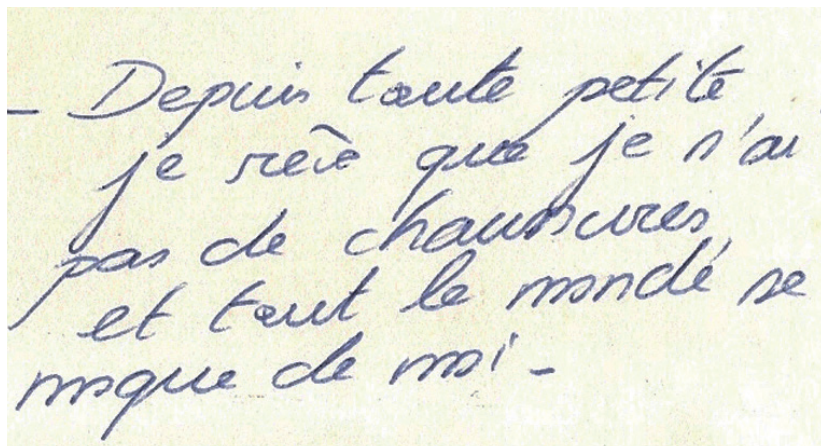 - Depuis toute petite
je rêve que je n'ai
pas de chaussures
et tout le monde se
moque de moi -